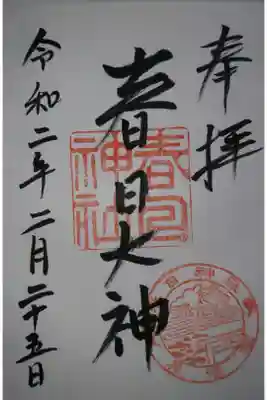 奉拝
春日大神
令和二年二月二十五日
春日神社